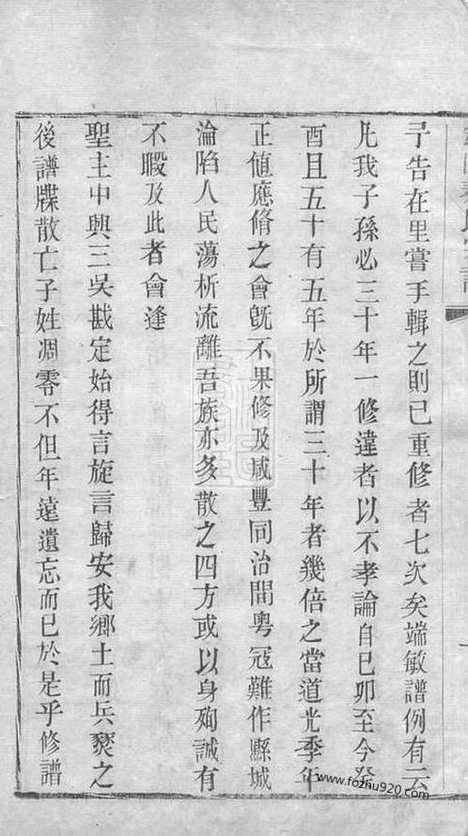 予告在里嘗手輯之則已重修者七次矣端敏譜例有云
凡我子孫必三十年一修違者以不孝論自己卯至今癸
酉且五十有五年於所謂三十年者幾倍之當道光季年
正値應脩之會旣不果修及咸豐同治間粵冦難作縣城
淪陷人民蕩析流離吾族亦多散之四方或以身殉誠有
不暇及此者會逢
聖主中興三吳戡定始得言旋言歸安我鄉土而兵燹之
後譜牒散亡子姓凋零不但年遠遺忘而已於是乎修譜
www.fozhu920.com